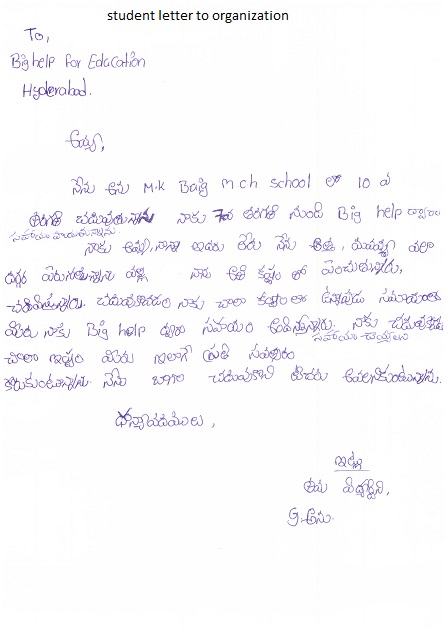 student letter to organization
To,
Big help for Education
Hyderabad.
అయ్యా,
నేను అను M.K Baig mch school లో 10 వ
తరగతి చదువుతున్నాను నాకు 7వ తరగతి నుండి Big help ద్వారా
సహాయం పొందుతున్నాను.
నాకు అమ్మ, నాన్న ఇద్దరు లేరు నేను అత్త, మామయ్య
దగ్గర పెరుగుతున్నాను వాళ్లు నాకు కష్టం లో పెంచుతున్నారు,
చదివిస్తున్నారు. చదువుకోవడం నాకు చాలా కష్టంగా ఉన్నప్పుడు
మీరు నాకు Big help ద్వారా సహాయం అందిస్తున్నారు. నాకు చదువంటే
చాలా ఇష్టం మీరు ఇలాగే ప్రతి సంవత్సరం
సహాయం చేయాలని
కోరుకుంటున్నాను. నేను బాగా చదువుకొని టీచరు అవ్వాలనుకుంటున్నాను.
ధన్యవాదములు,
ఇట్లు
తమ విద్యార్థిని,
G. అను.